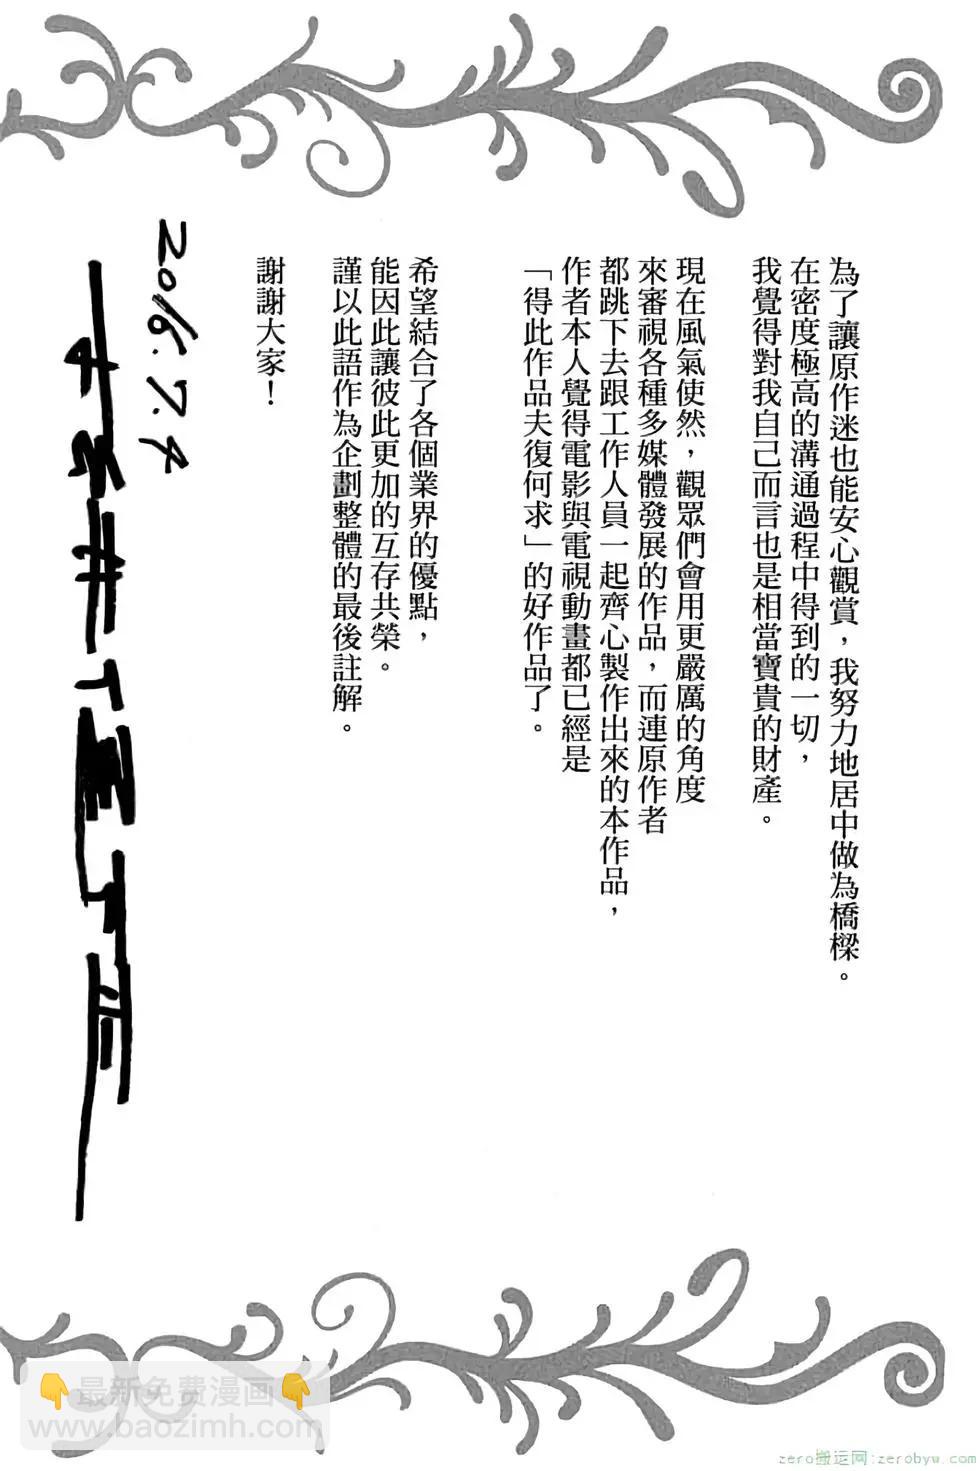 為了讓原作迷也能安心觀賞，我努力地居中做為橋樑。
在密度極高的溝通過程中得到的一切，
我覺得對我自己而言也是相當寶貴的財產。
現在風氣使然，觀眾們會用更嚴厲的角度
來審視各種多媒體發展的作品，而連原作者
都跳下去跟工作人員一起齊心製作出來的本作品，
作者本人覺得電影與電視動畫都已經是
「得此作品夫復何求」的好作品了。
希望結合了各個業界的優點，
能因此讓彼此更加的互存共榮。
謹以此語作為企劃整體的最後註解。
謝謝大家！
2016.7.4
最新免費漫画
www.baozimh.com
zero搬运网:zerobyw.com